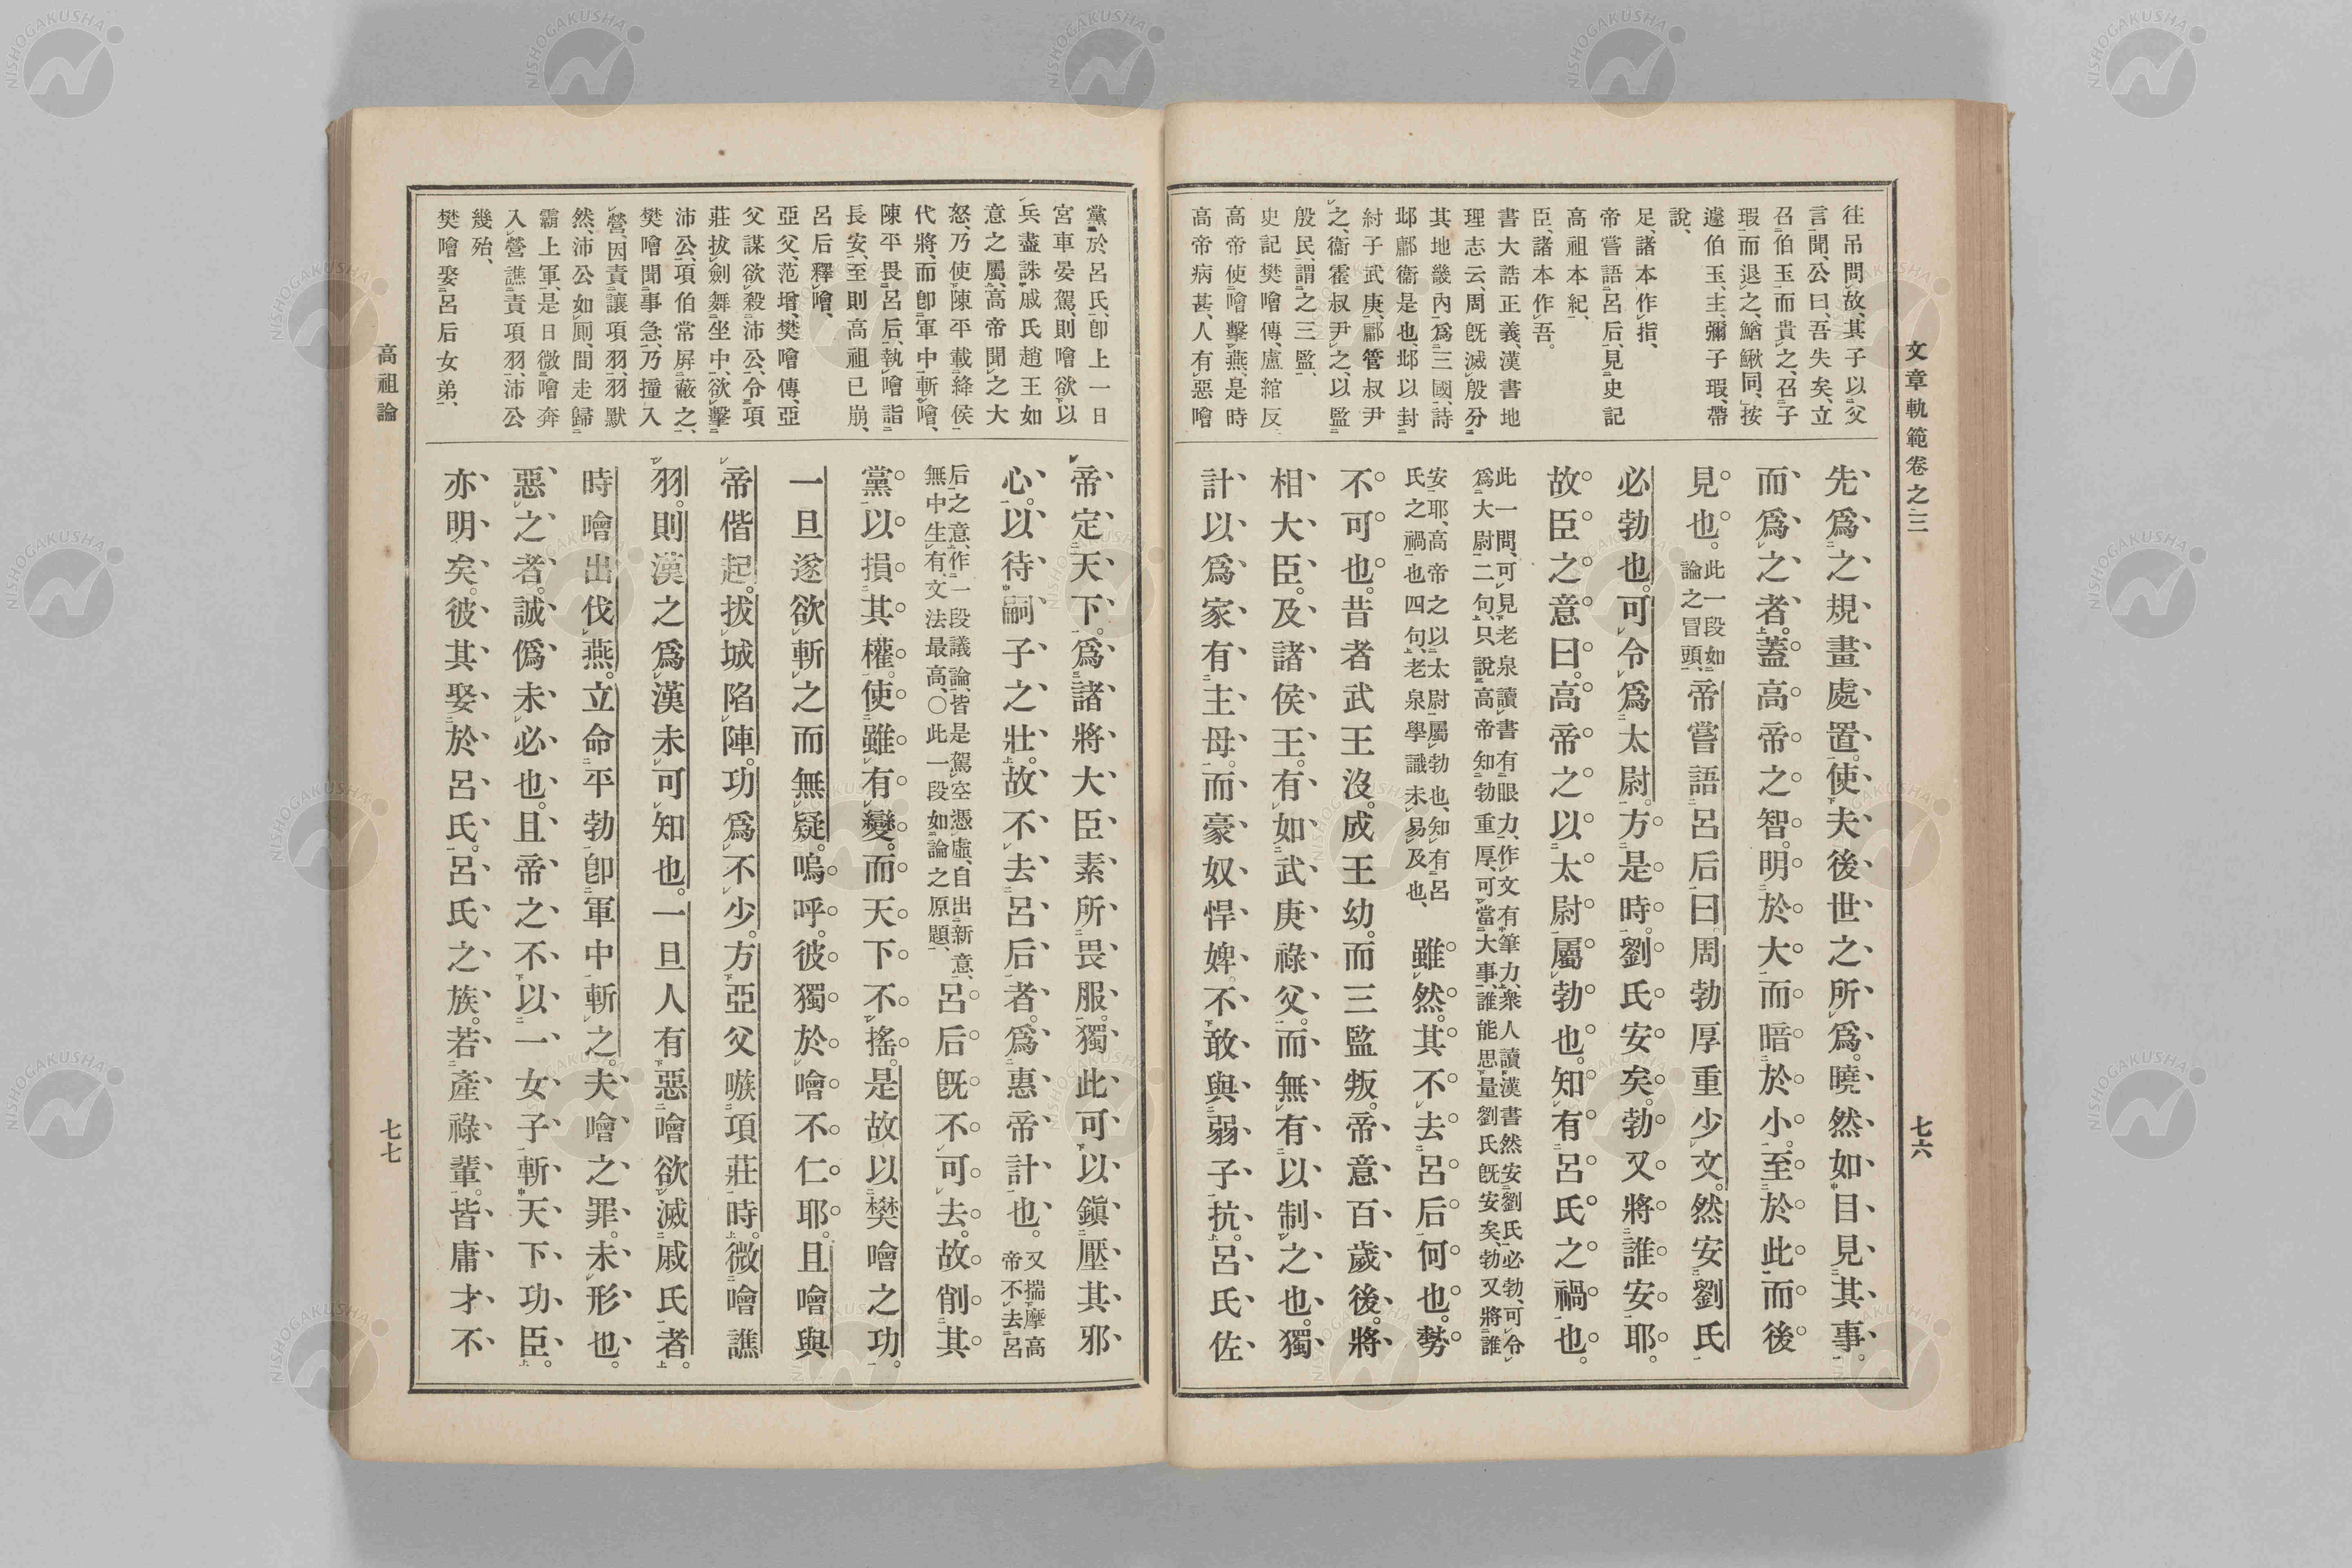 文章軌範卷之三
七六
往吊問故、其子以父
言聞、公曰、吾失矣、立
召伯玉而貴之、召子
瑕而退之、鰌鰍同、按
蘧伯玉、主彌子瑕、帶
說、
足、諸本作指、
帝嘗語呂后、見史記
高祖本紀、
臣、諸本作吾。
書大誥正義、漢書地
理志云、周旣滅殷分
其地畿內爲三國、詩
邶鄘衞是也、邶以封
紂子武庚、鄘管叔尹
之、衞霍叔尹之、以監
殷民、謂之三監、
史記樊噲傳、盧綰反
高帝使噲擊燕、是時
高帝病甚、人有惡噲
先爲之規畫處置。使夫後世之所爲。曉然如目見其事。
而爲之者。蓋高帝之智。明於大而暗於小。至於此而後
見也。此一段如論之冒頭、帝嘗語呂后曰。周勃厚重少文。然安劉氏
必勃也。可令爲太尉。方是時。劉氏安矣。勃又將誰安耶。
故臣之意曰。高帝之以太尉屬勃也。知有呂氏之禍也。
此一問、可見老泉讀書有眼力、作文有筆力、衆人讀漢書然安劉氏必勃、可令
爲大尉二句、只說高帝知勃重厚、可當大事、誰能思量劉氏旣安矣、勃又將誰
安耶、高帝之以太尉屬勃也、知有呂
氏之禍也四句、老泉學識未易及也、雖然。其不去呂后。何也。勢
不可也。昔者武王沒。成王幼。而三監叛。帝意百歲後。將
相大臣。及諸侯王。有如武庚祿父。而無有以制之也。獨
計以爲家有主母。而豪奴悍婢。不敢與弱子抗。呂氏佐
黨於呂氏、卽上一日
宮車晏駕、則噲欲以
兵盡誅戚氏趙王如
意之屬、高帝聞之大
怒、乃使陳平載絳侯
代將、而卽軍中斬噲、
陳平畏呂后、執噲詣
長安、至則高祖已崩、
呂后釋噲、
亞父、范增、樊噲傳、亞
父謀欲殺沛公、令項
莊拔劍舞坐中、欲擊
沛公、項伯常屏蔽之、
樊噲聞事急、乃撞入
營、因責讓項羽、羽默
然、沛公如厠、間走歸
霸上軍、是日微噲奔
入營譙責項羽、沛公
幾殆、
樊噲娶呂后女弟、
帝定天下。爲諸將大臣素所畏服。獨此可以鎭壓其邪
心。以待嗣子之壯。故不去呂后者。爲惠帝計也。又揣摩高帝不去呂
后之意、作一段議論、皆是駕空憑虛、自出新意、
無中生有、文法最高、〇此一段如論之原題、呂后旣不可去。故削其
黨。以損其權。使雖有變。而天下不搖。是故以樊噲之功。
一旦遂欲斬之而無疑。嗚呼。彼獨於噲不仁耶。且噲與
帝偕起。拔城陷陣。功爲不少。方亞父嗾項莊時。微噲譙
羽。則漢之爲漢未可知也。一旦人有惡噲欲滅戚氏者。
時噲出伐燕。立命平勃卽軍中斬之。夫噲之罪。未形也。
惡之者。誠僞未必也。且帝之不以一女子斬天下功臣。
亦明矣。彼其娶於呂氏。呂氏之族。若產祿輩。皆庸才不
高祖論
七七